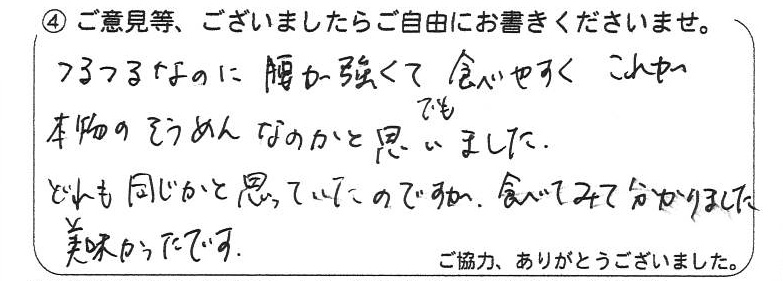 ④ ご意見等、ございましたらご自由にお書きくださいませ。
つるつるなのに 腰が強くて 食べやすく これが
でも
本物のそうめんなのかと思いました.
どれも同じかと思っていたのですが、食べてみて分かりました
美味かったです.
ご協力、ありがとうございました。